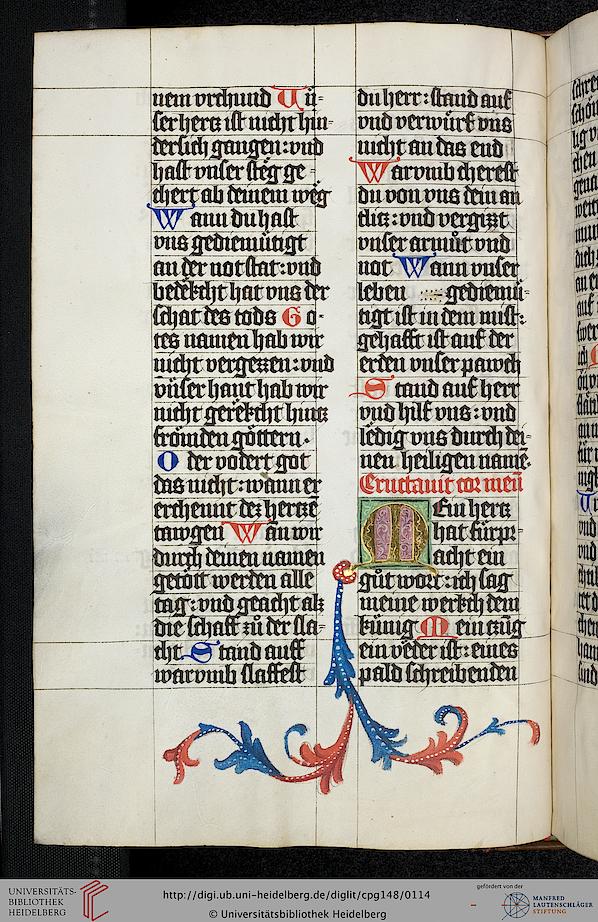 nem vrchund Vn-
ser hertz ist nicht hin-
dersich gangen: vnd
hast vnser steg ge-
chert ab deinem weg
Wann du hast
vns gediemütigt
an der not stat: vnd
bedekcht hat vns der
schat des tods Go-
tes namen hab wir
nicht vergezzen: vnd
vnser hant hab wir
nicht gerekcht hintz
frömden göttern.
O der vodert got
das nicht: wann er
erchennt dez hertzē
tawgen Wan wir
durch deinen namen
getött werden alle
tag: vnd geacht alz
die schaff zů der sla-
cht Stand auff
warvmb slaffest
du herr: stand auf
vnd verwürf vns
nicht an das end
Warvmb cherest
du von vns dein an
tlitz: vnd vergizzt
vnser armůt vnd
not Wann vnser
leben gediemü-
tigt ist in dem mist:
gehafft ist auf der
erden vnser pawch
Stand auf herr
vnd hilf vns: vnd
ledig vns durch dei-
nen heiligen namē.
Eructauit cor meū
Mein hertz
hat fürpr-
acht ein
gůt wort: ich sag
meine werkch dem
künig Mein czūg
ein veder ist: eines
pald schreibenden
UNIVERSITÄTS-
BIBLIOTHEK
HEIDELBERG
http://digi.ub.uni-heidelberg.de/diglit/cpg148/0114
© Universitätsbibliothek Heidelberg
gefördert von der
MANFRED
LAUTENSCHLÄGER
STIFTUNG